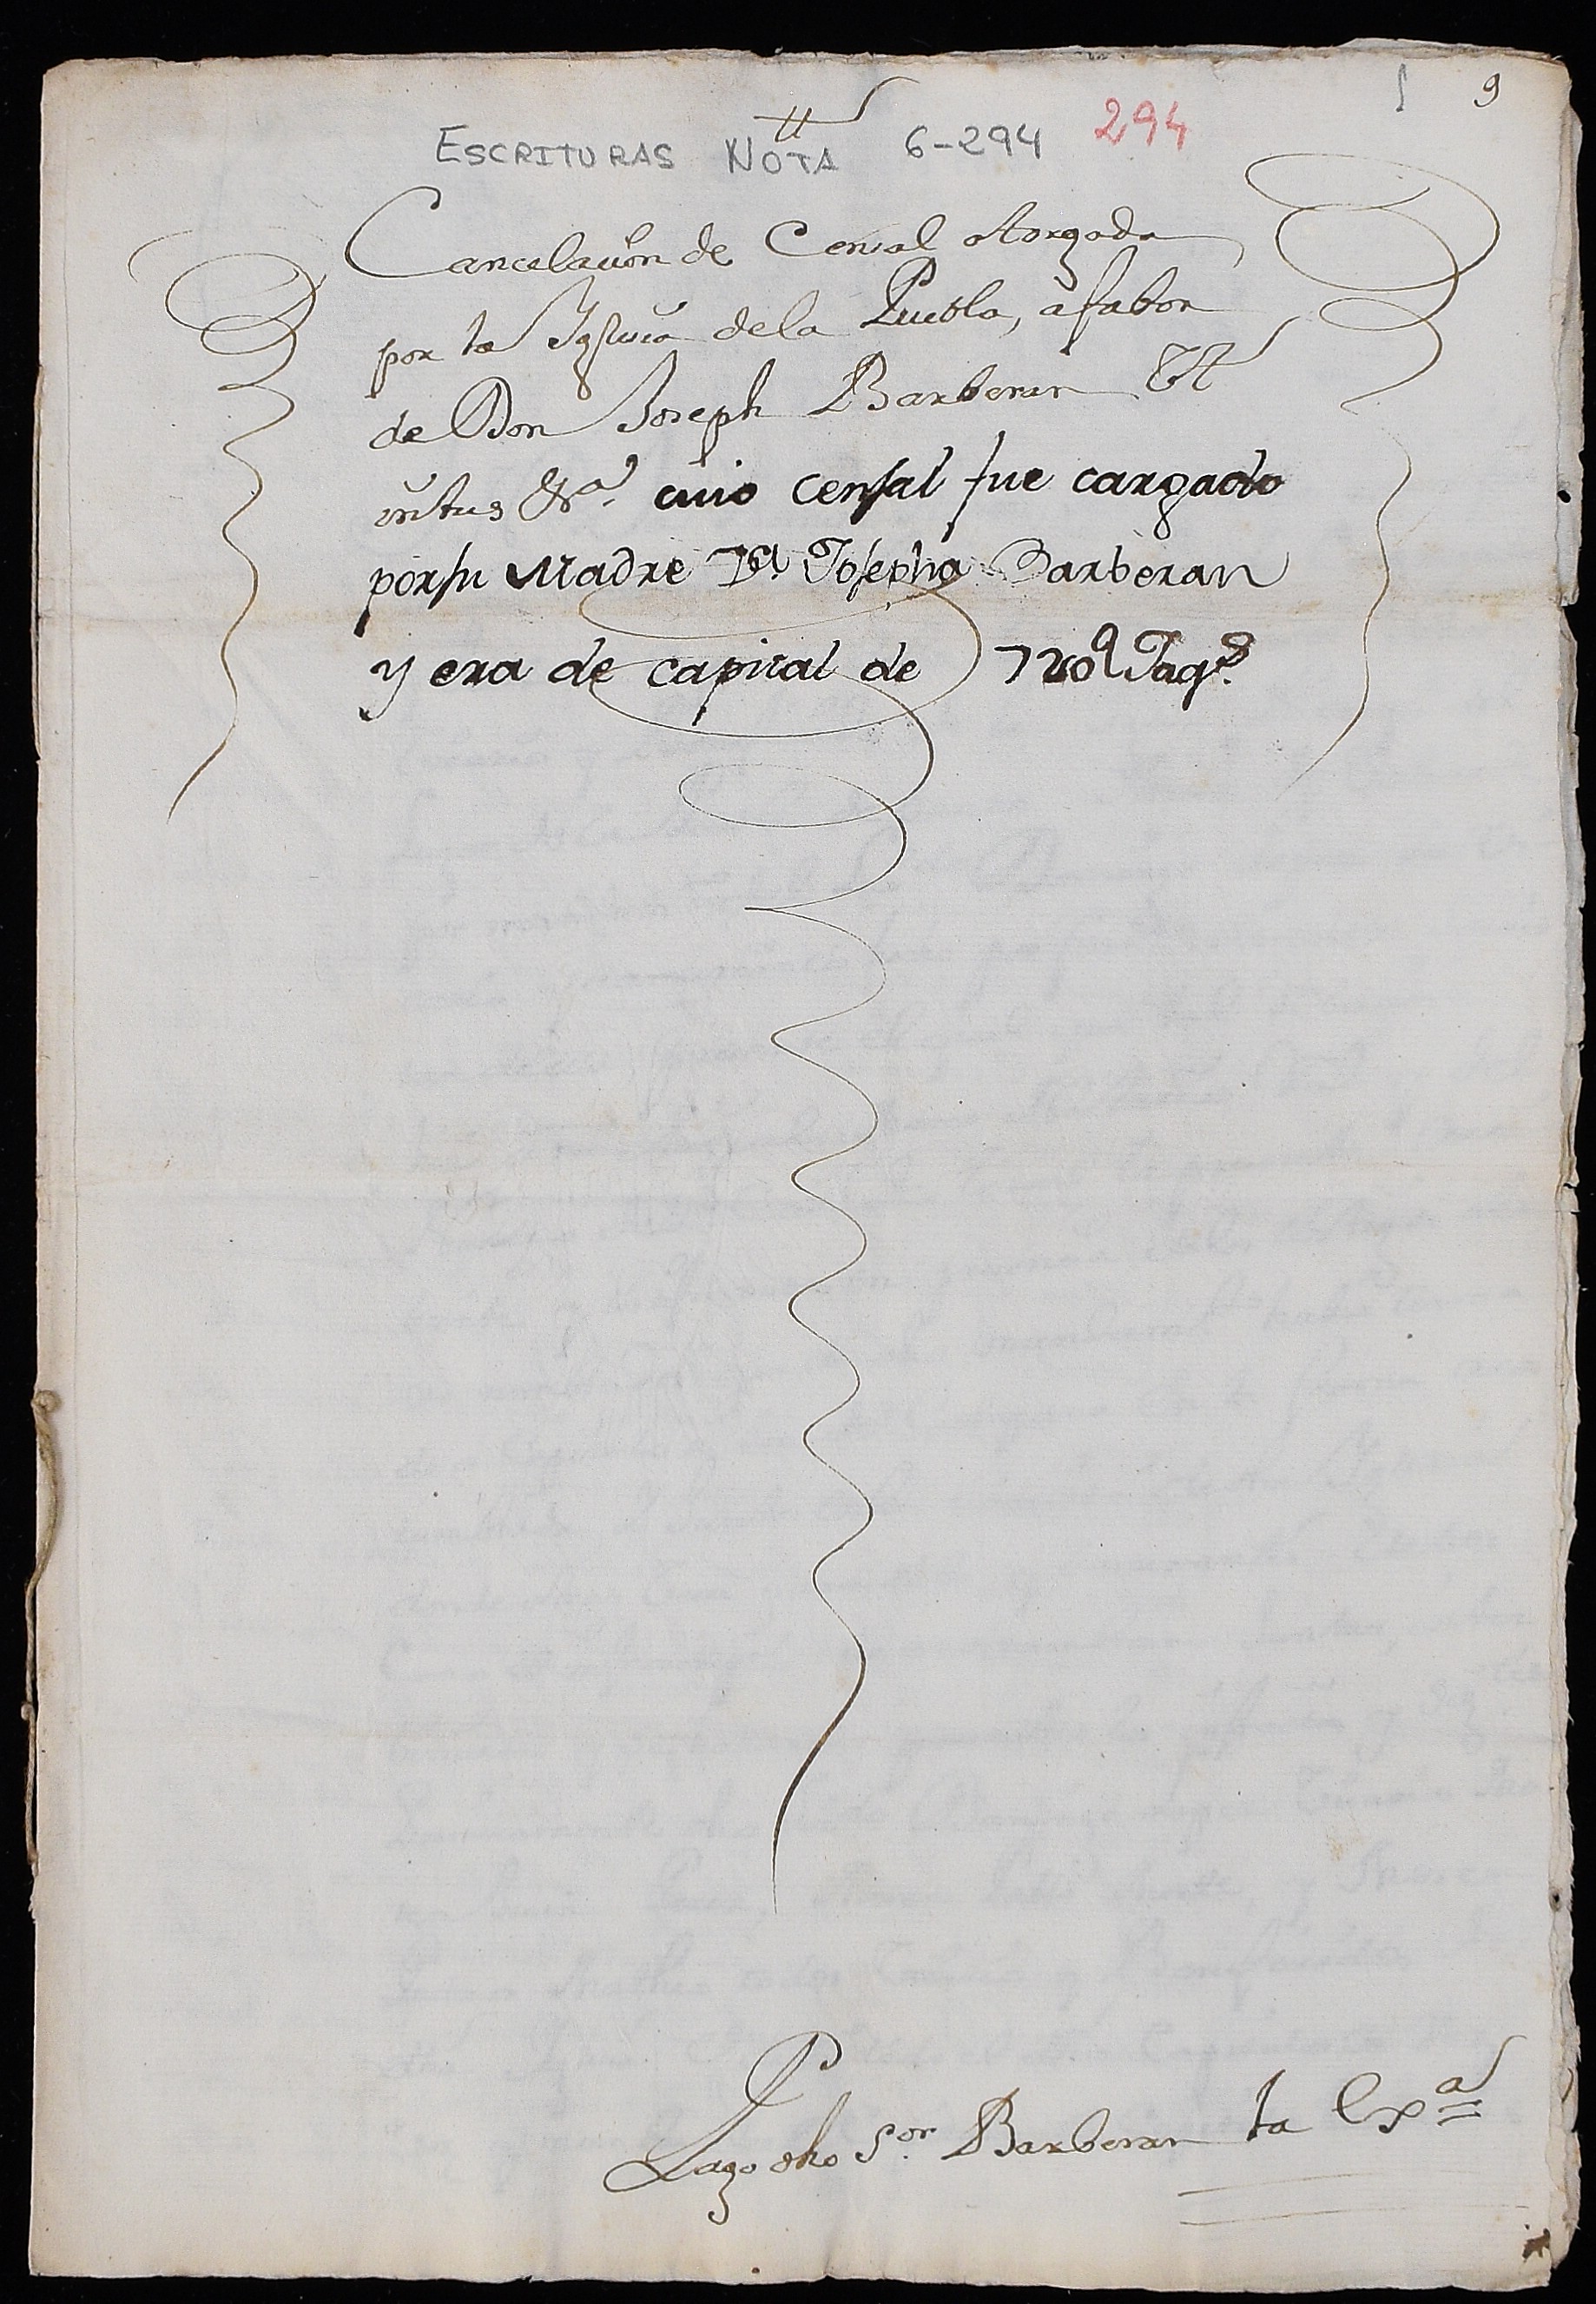 9
ESCRITURAS NOTA 6-294 294
Cancelacion de Censal otorgada
por la Yglesia de la Puebla, a fabor
de Don Joseph Barberan
cuio Censal fue cargado
por su Madre Dª Josepha Barberan
y era de capital de 720 Jaqs.
Pago dho Sor. Barberan la Exª